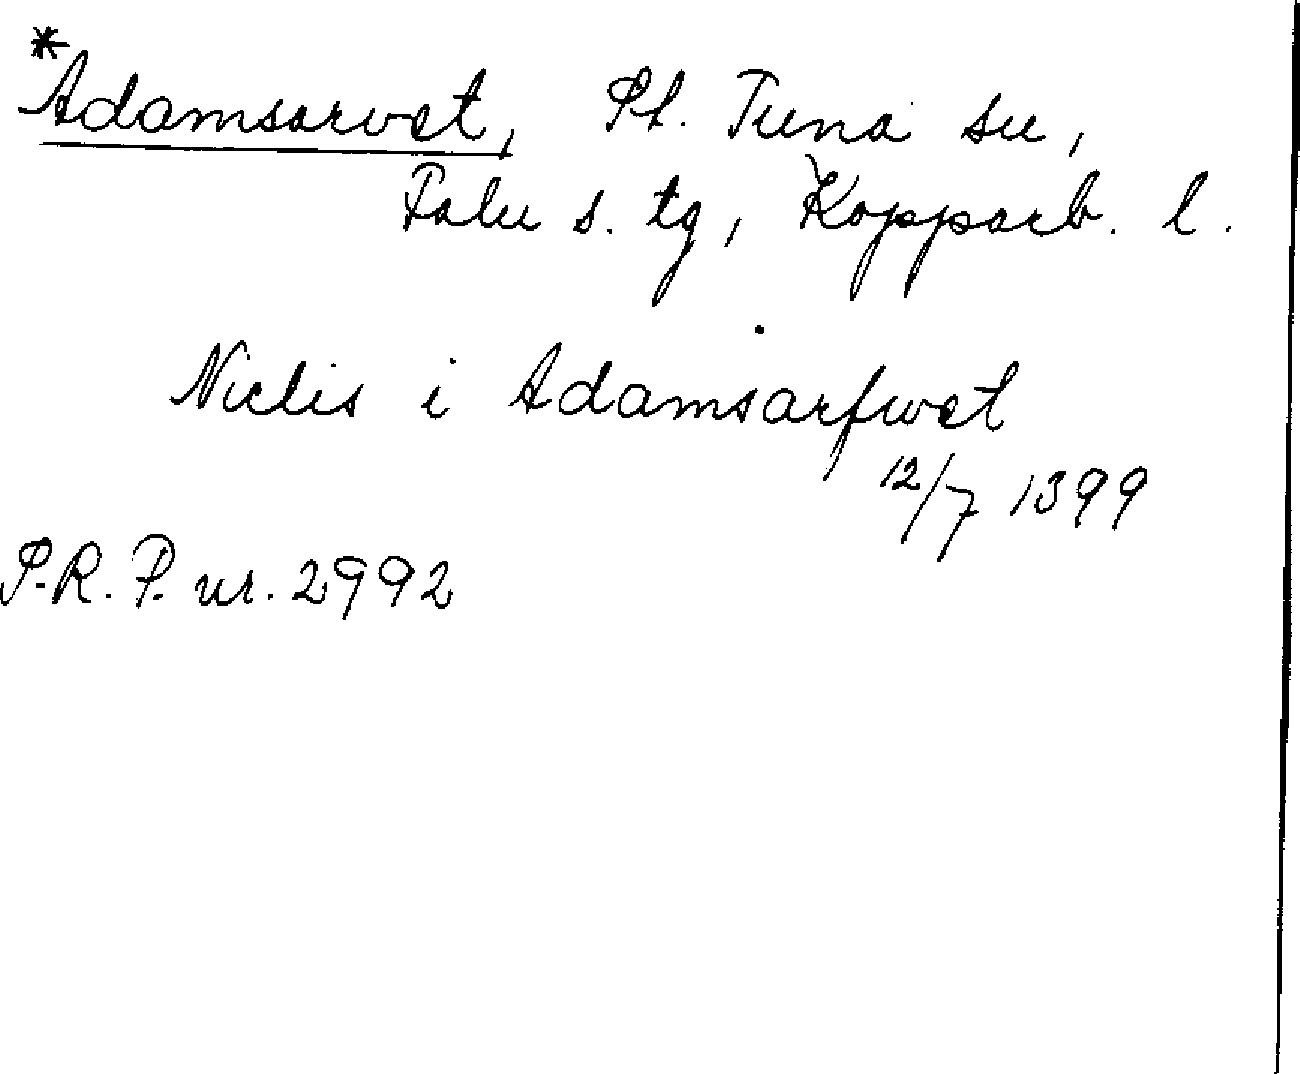 *Adamsarvet, St. Tuna sn,
Falu s. tg, Kopparb. l.
Niclis i Adamsarfwet
12/7 1399
S.R.P. nr. 2992